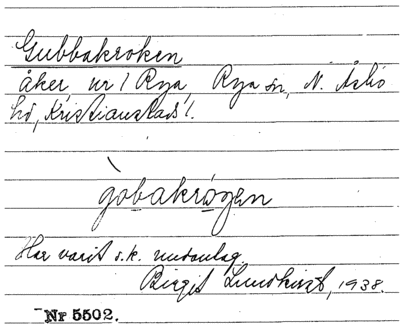 Gubbakroken
åker, nr 1 Rya, Rya sn, N. Åsbo
hd, Kristianstads l.
`gobakrogen
Har varit s.k. undantag.
Birgit Lundkvist, 1938.
Nr 5502.